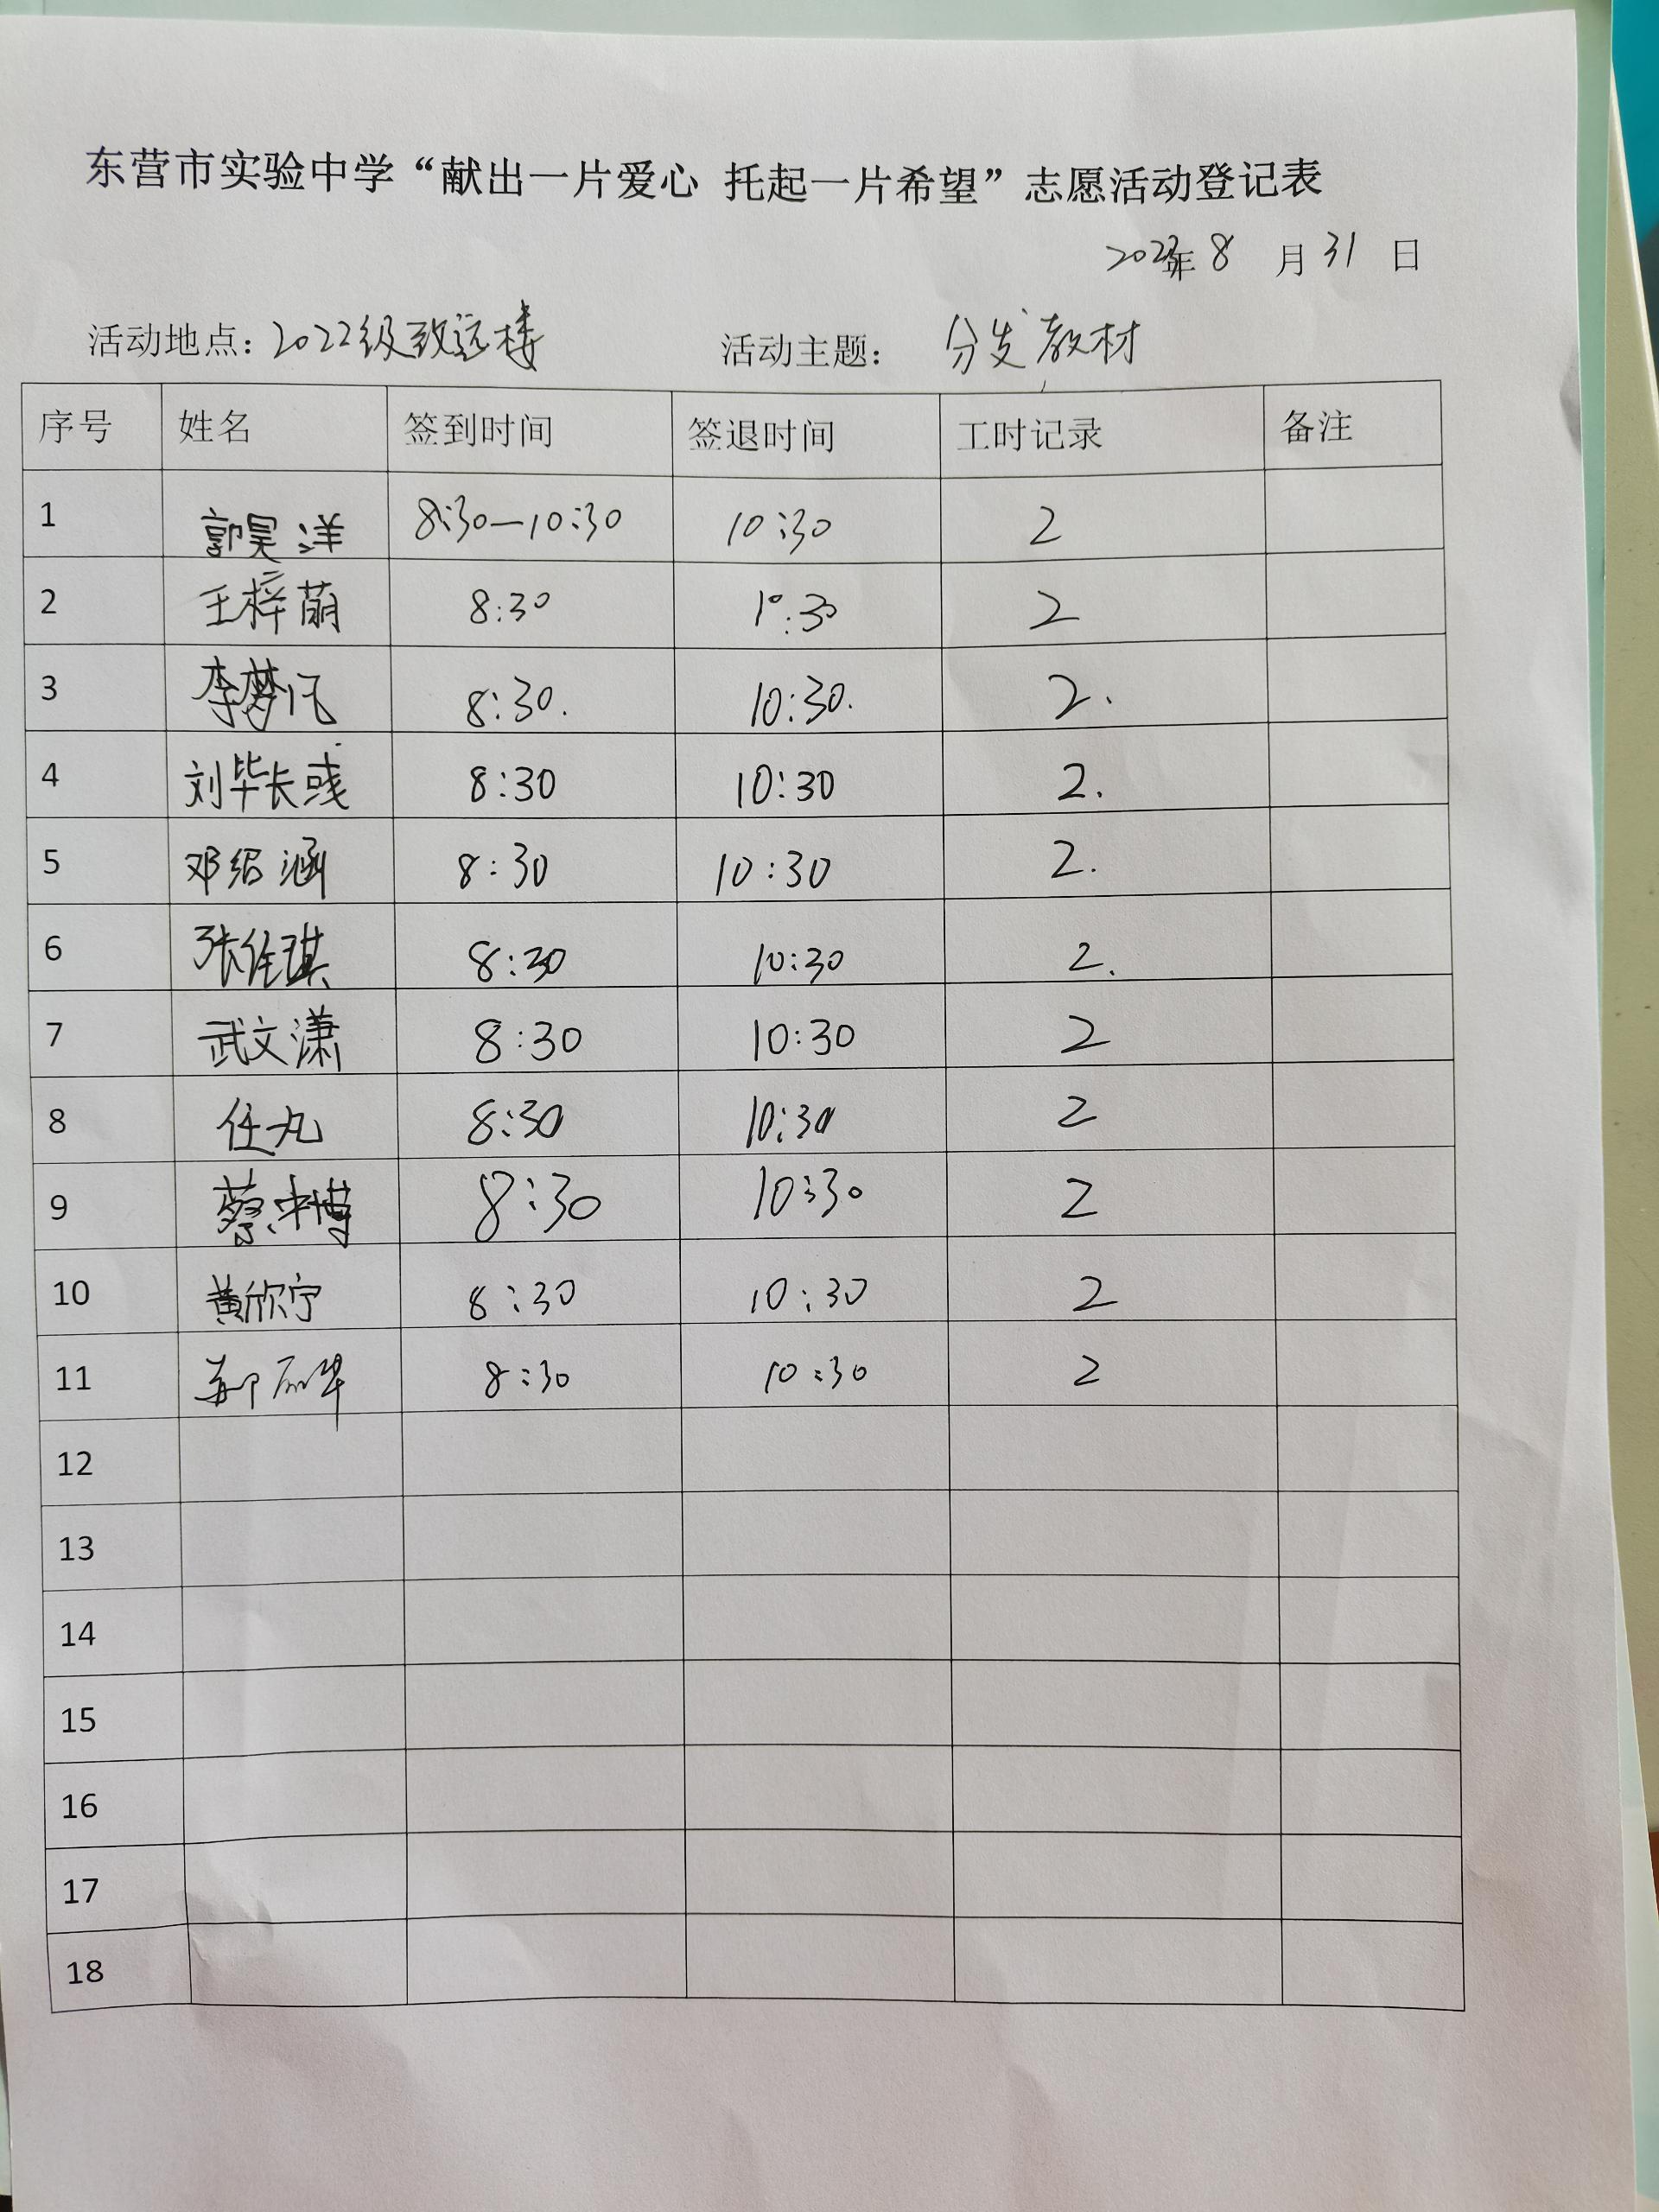 东营市实验中学“献出一片爱心 托起一片希望”志愿活动登记表
2023年 8 月 31 日
活动地点：2022级致远楼 活动主题： 分发教材
序号 姓名 签到时间 签退时间 工时记录 备注
1 郭昊洋 8:30—10:30 10:30 2
2 王梓萌 8:30 10:30 2
3 李梦 8:30. 10:30. 2.
4 刘毕长彧 8:30 10:30 2.
5 邓绍涵 8:30 10:30 2.
6 张维琪 8:30 10:30 2.
7 武文潇 8:30 10:30 2
8 任丸 8:30 10:30 2
9 蔡 博 8:30 10:30 2
10 黄欣宁 8:30 10:30 2
11 8:30 10:30 2
12
13
14
15
16
17
18